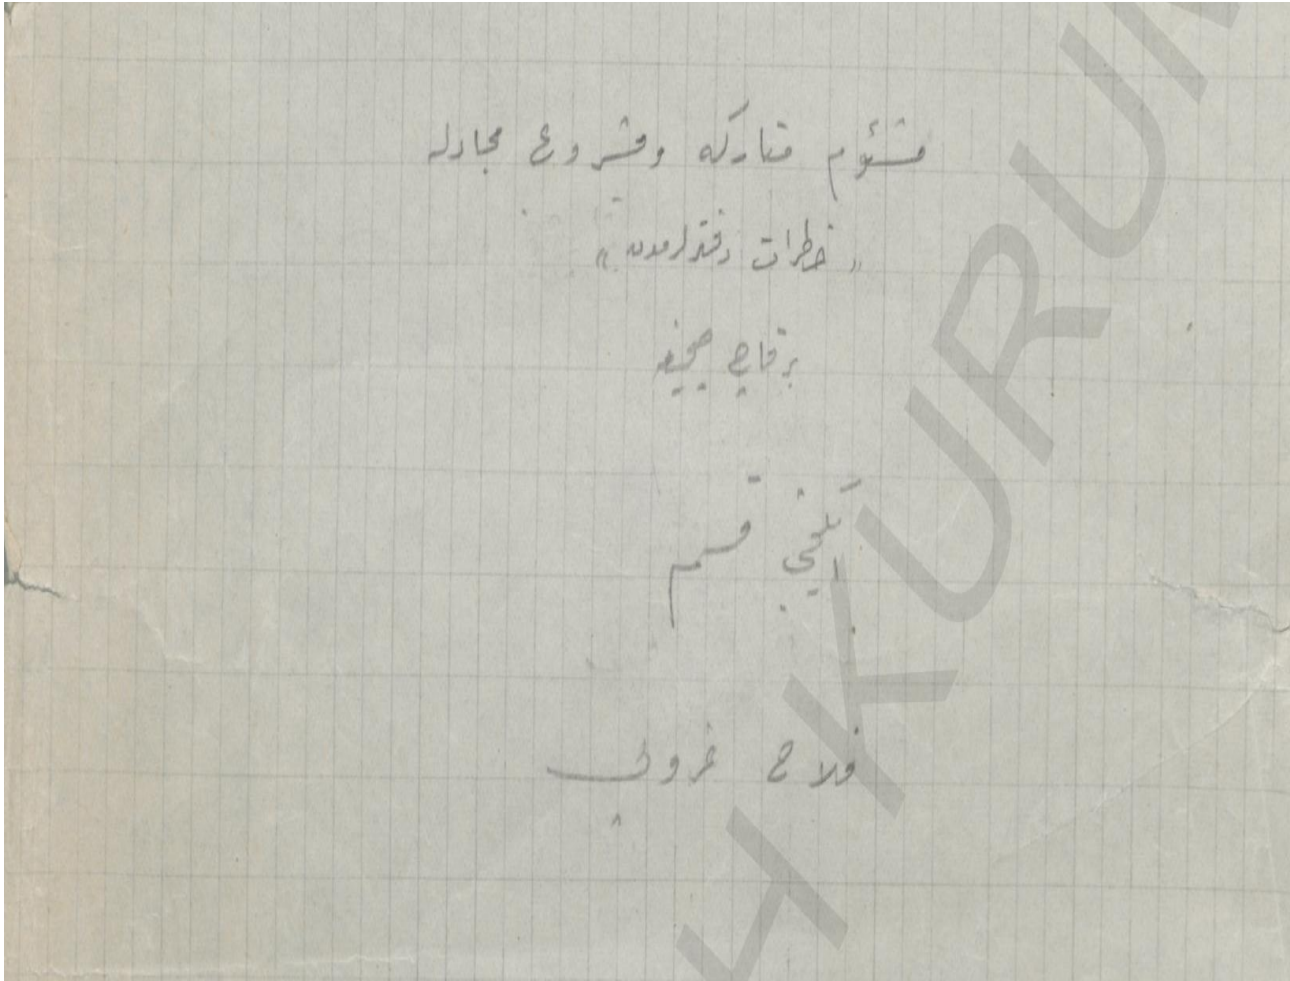 مشئوم متاركه ومشروع مجادله
« خطرات دفترلرمدن »
برقاچ صحيفه
ايكنجى قسم
فلاح غروپى
KURUM